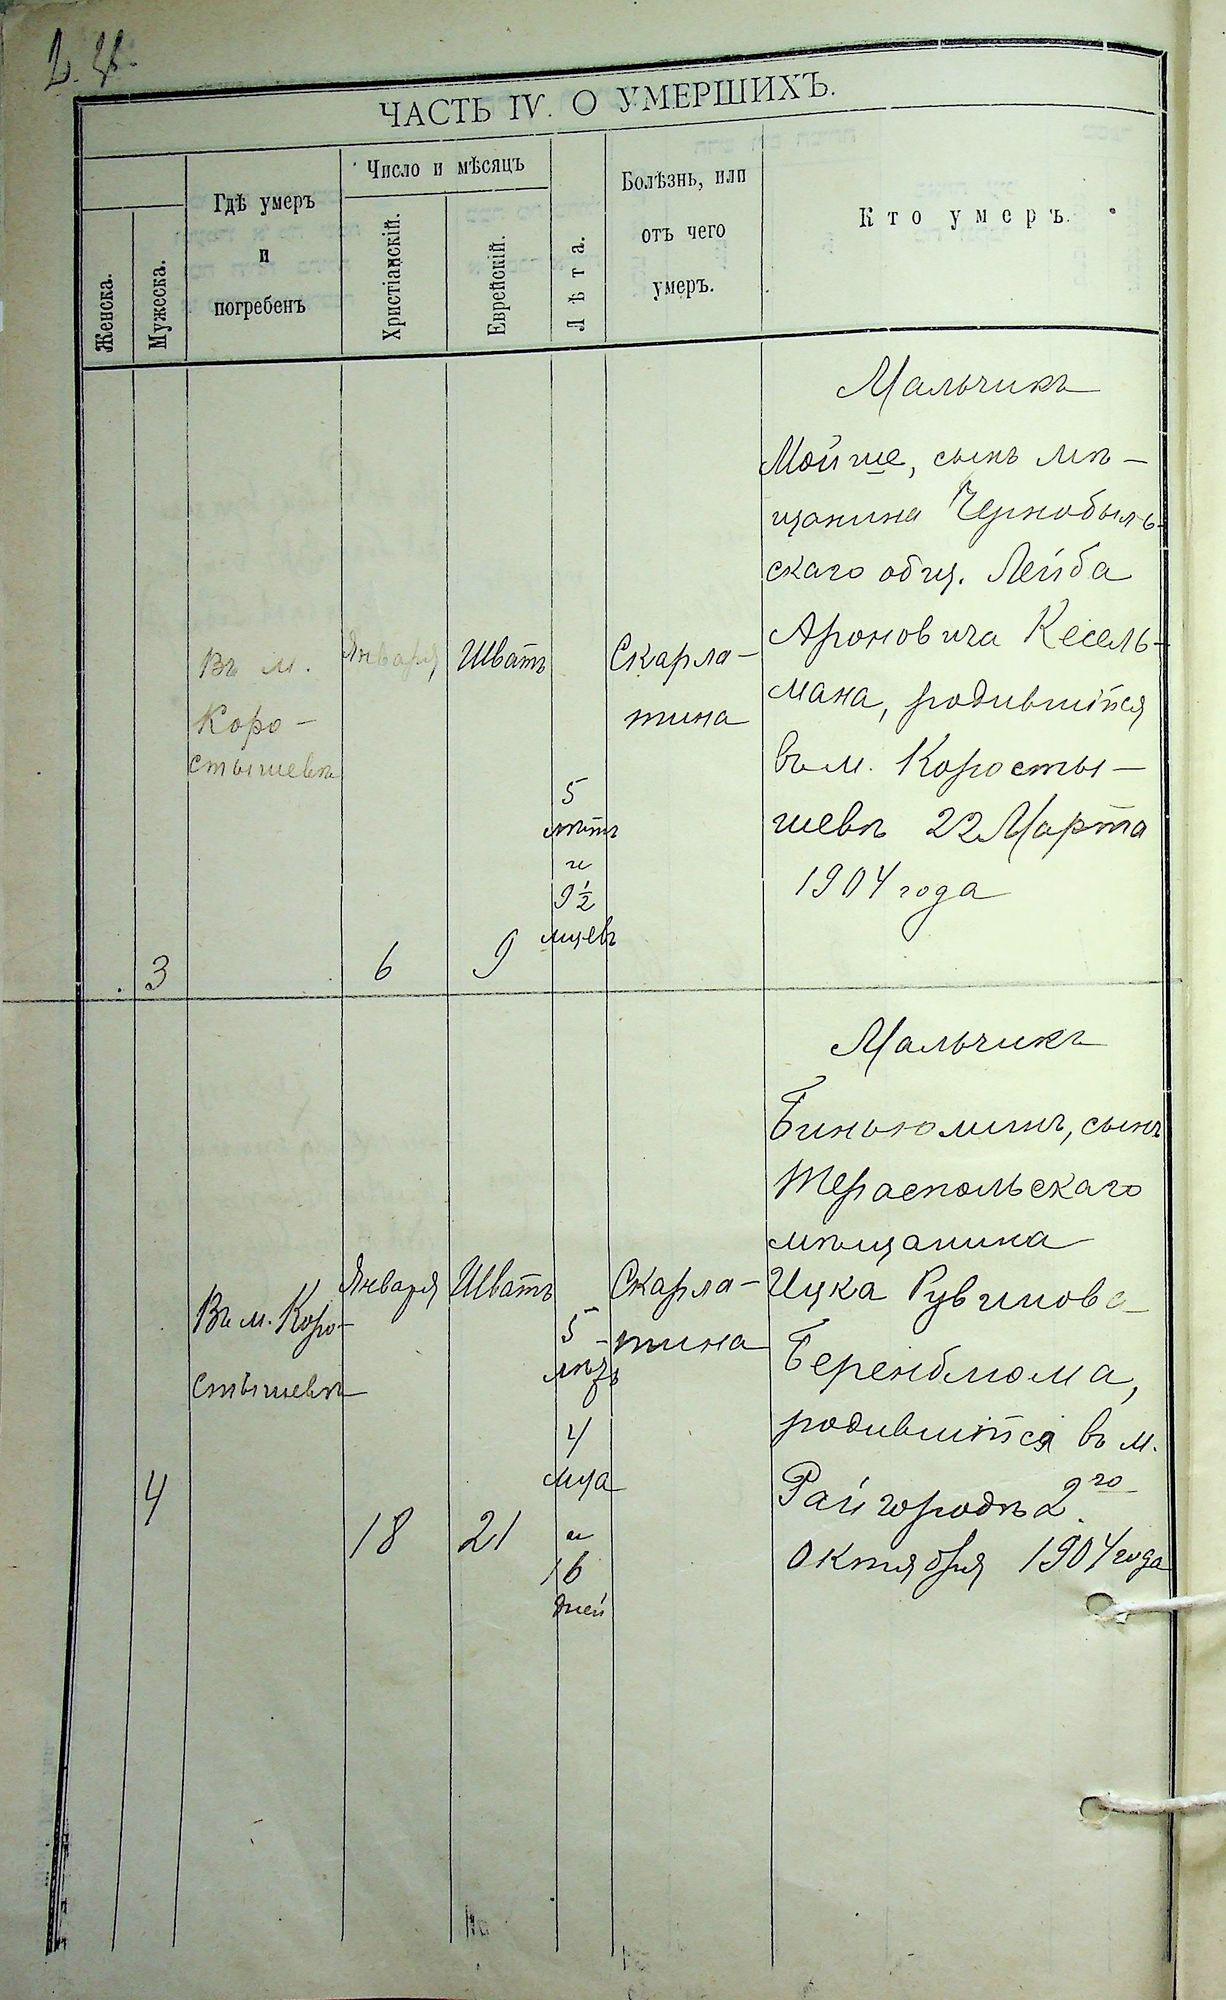 ЧАСТЬ IV. О УМЕРШИХЪ.
Женска.
Мужеска.
Гдѣ умеръ
и
погребенъ
Число и мѣсяцъ
Христіанскій.
Еврейскій.
Лѣта.
Болѣзнь, или
отъ чего
умеръ.
Кто умеръ.
3
Въ м.
Коро-
стышевѣ
Января
6
Шватъ
9
5
лѣтъ
и
9 1/2
мцевъ
Скарла-
тина
Мальчикъ
Мойше, сынъ мѣ-
щанина Чернобыль-
скаго общ. Лейба
Ароновича Кесель-
мана, родившійся
въ м. Коросты-
шевѣ 22 Марта
1904 года
4
Въ м. Коро-
стышевѣ
Января
18
Шватъ
21
5
лѣтъ
4
мца
и
16
дней
Скарла-
тина
Мальчикъ
Биньюминъ, сынъ
Тераспольскаго
мѣщанина
Ицка Рувинова
Беренблюма,
родившійся въ м.
Райгородѣ 2го
Октября 1904 года